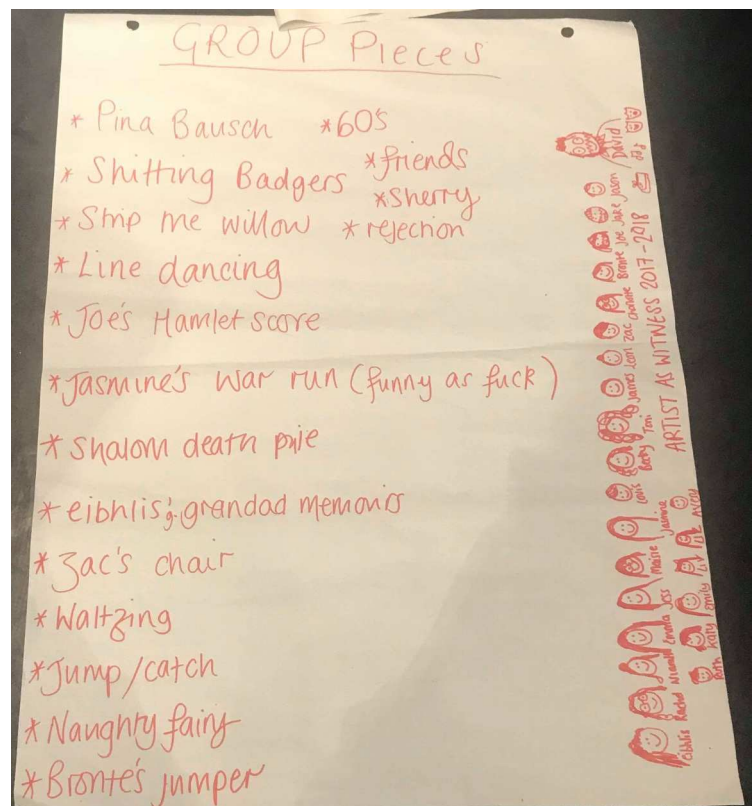 GROUP Pieces
* Pina Bausch *60's
* Shitting Badgers *friends
*Sherry
* Strip me willow * rejection
* Line dancing
* Joe's Hamlet score
*Jasmine's war run (funny as fuck)
* Shalom death pile
* eibhlis' grandad memoirs
* Zac's chair
* Waltzing
*Jump/catch
* Naughty fairy
* Bronte's jumper
Eibhlis Rachel Niamh Emelia Jess Maisie Jasmine Lois Becky Toni James Leoni Zac Charlotte Bronte Joe Jake Jason David
Ruth Katy Emily Liv Avery
ARTIST AS WITNESS 2017-2018